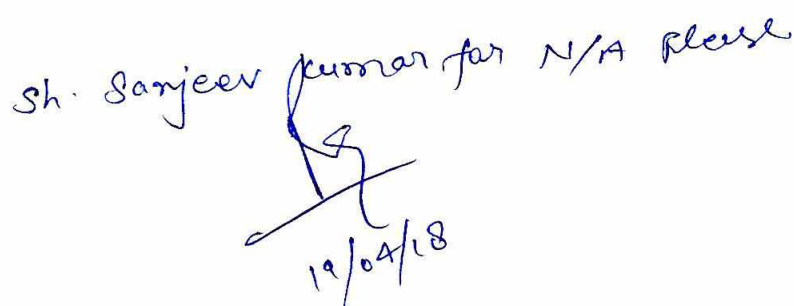 Sh. Sanjeev Kumar for N/A Please
19/04/18